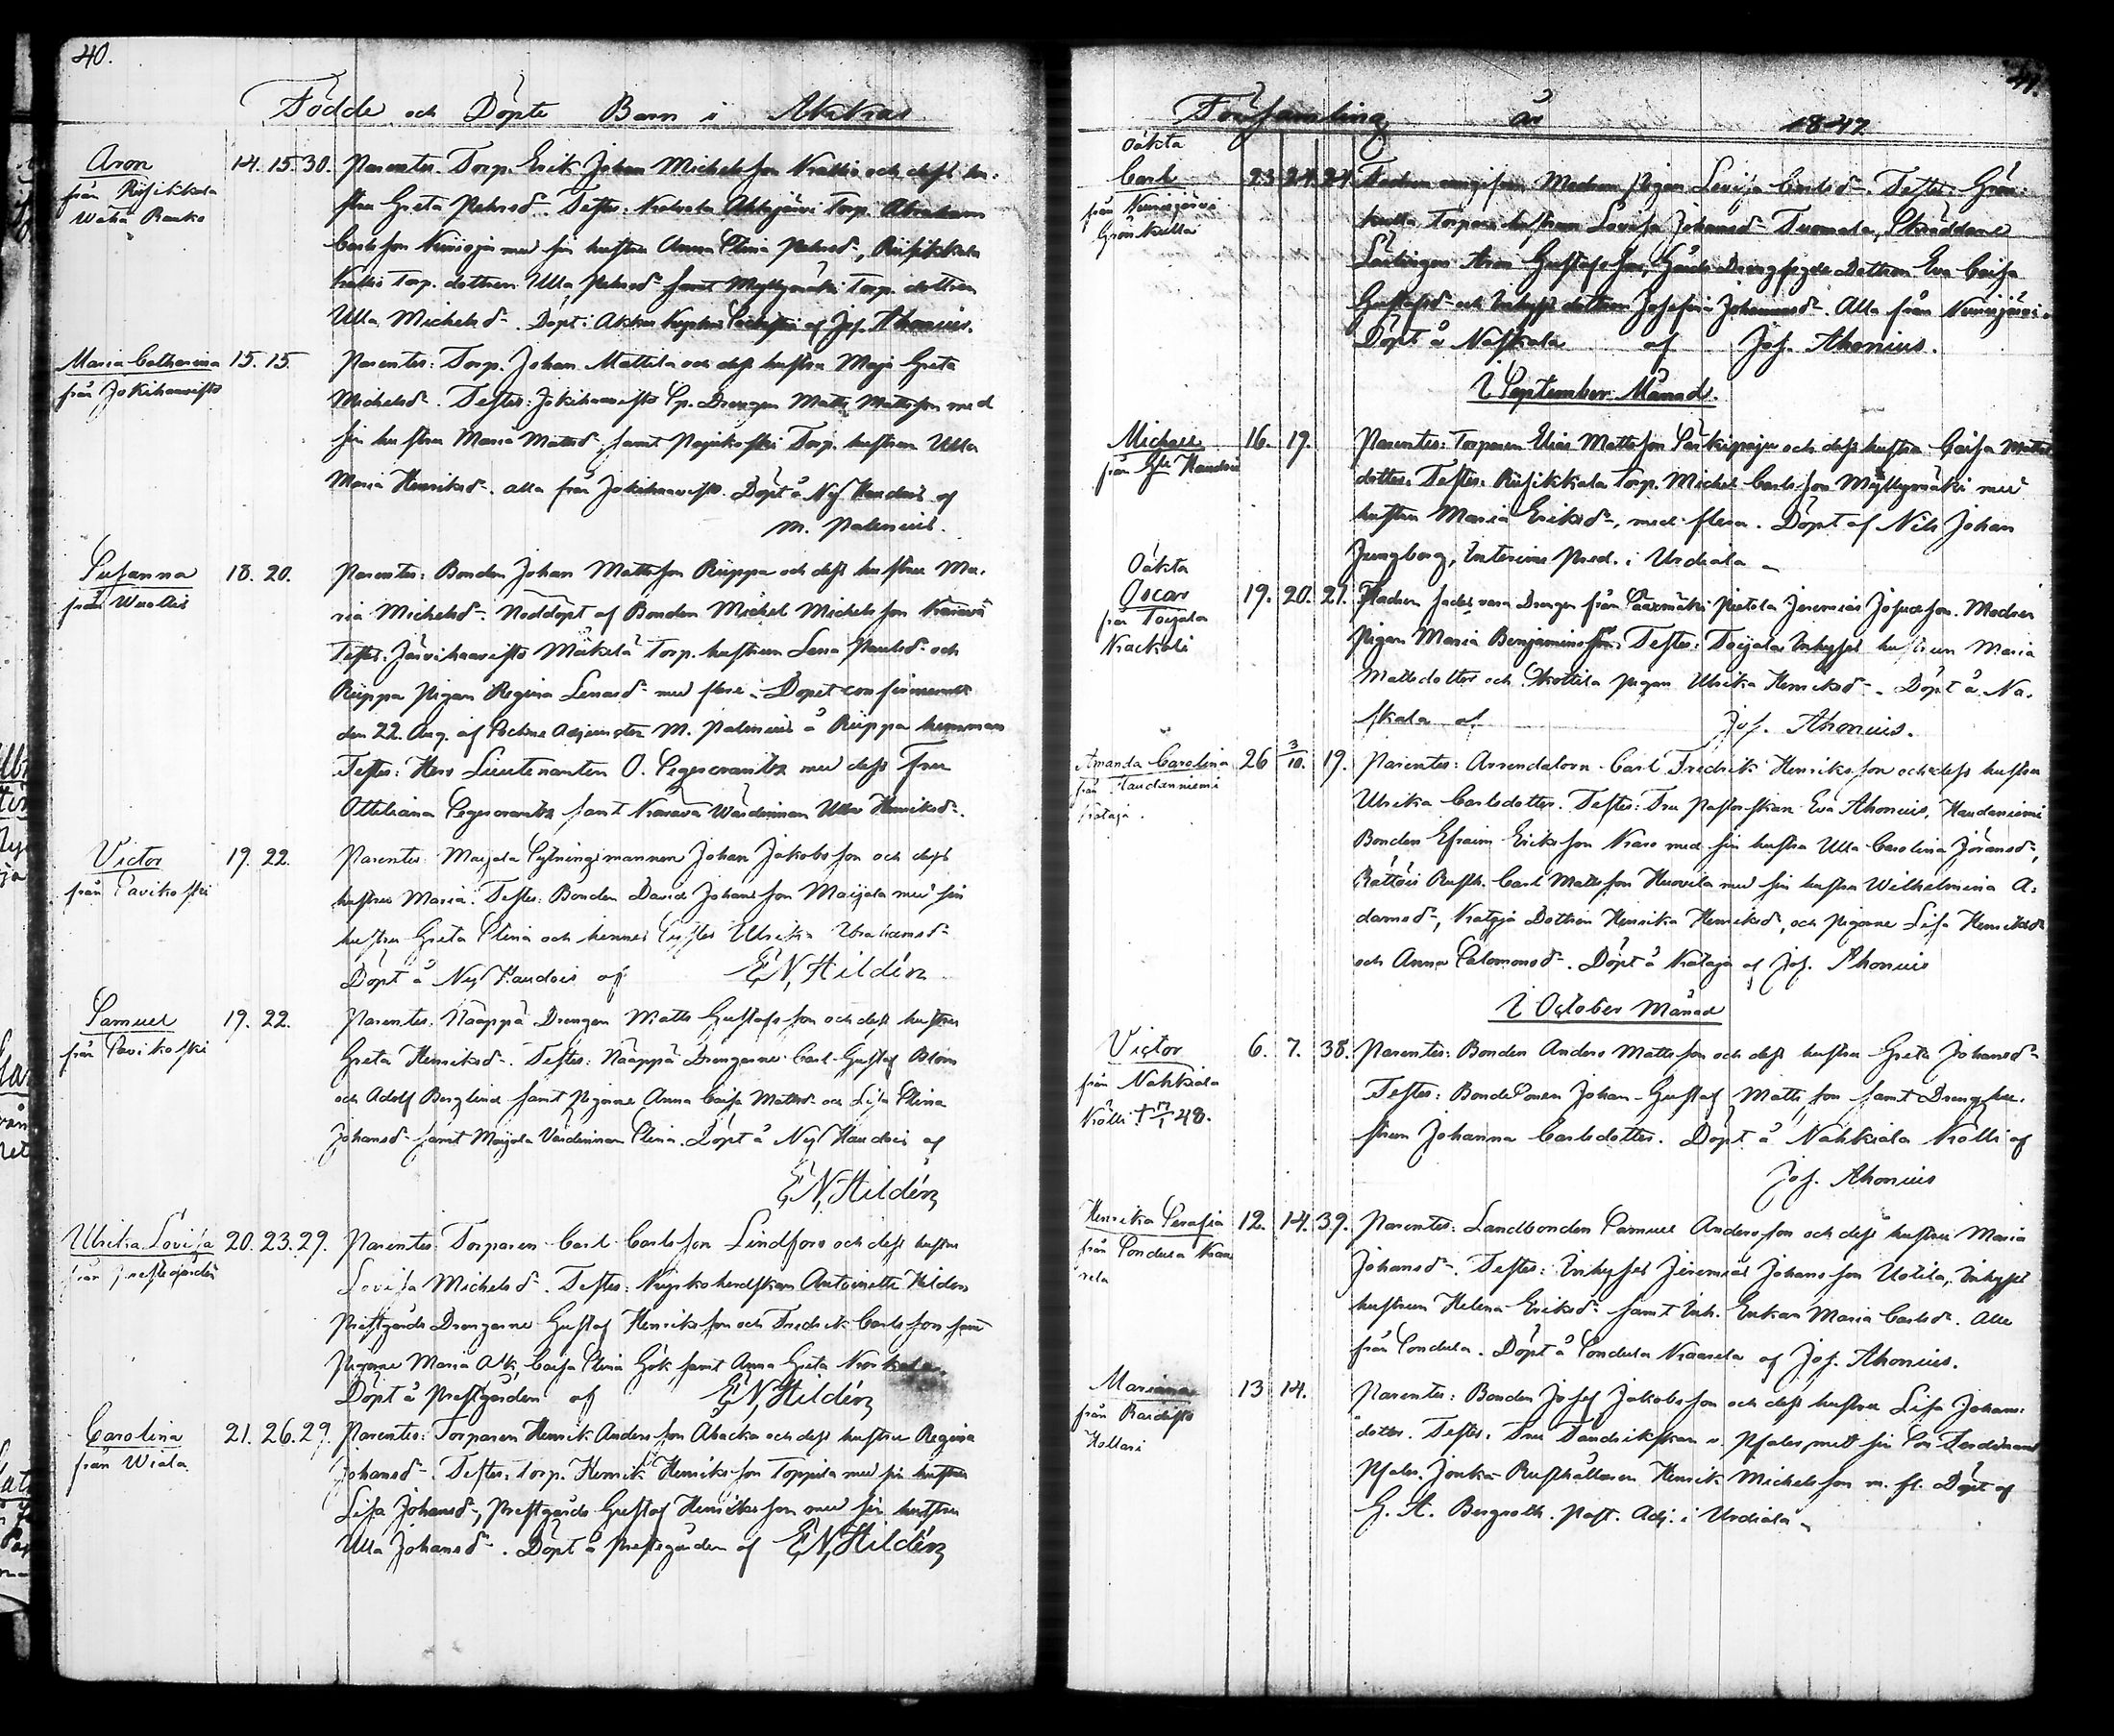 40.
Födde och Döpte Barn i Akkas
Aron
från Riisikkala
Wähä Rauko
14. 15. 30. Parentes. Torp. Erik Johan Michelsson Krattis och dess hu-
stru Greta Pehrsd. Testes: Ahlajärvi Torp. Abraham
Carlsson med sin hustru Anna Stina Pehrsd., Riisikkala
Torp. dottren Ulla Pehrsd. samt Myllymäki Torp. dottren
Ulla Michelsd. Döpt i Akkas af Jos. Ahonius.
Maria Catharina
från Jokihaavisto
15. 15. Parentes: Torp. Johan Mattila och dess hustru Maja Greta
Michelsd. Testes: Jokihaavisto Sp. Drengen Matts Mattsson med
sin hustru Maria Mattsd. samt Pajukoski Torp. hustrun Ulla
Maria Henriksd. alla från Jokihaavisto. Döpt å Nys Haudois af
M. Palenius.
Susanna
från
18. 20. Parentes: Bonden Johan Mattsson Riippa och dess hustru Ma-
ria Michelsd. Nöddöpt af Bonden Michel Michelsson Narava
Testes: Järvihaavisto Mäkelä Torp. hustrun Lena Paulsd. och
Riippa pigan Regina Lenasd. med flere. Dopet confirmeradt
den 22. Aug. af Sockne Adjuncten M. Palenius å Riippa hemman
Testes: Herr Lieutenanten O. Segercrantz med dess Fru
Otteliana Segercrantz samt Narava Wärdinnan Ulla Henriksd.
Victor
från Savikoski
19. 22. Parentes: Maijala Sytningsmannen Johan Jakobsson och dess
hustru Maria. Testes: Bonden David Johansson Maijala med sin
hustru Greta Stina och hennes Syster Ulrika Abrahamsd.
Döpt å Nys Haudois af E N Hildén
Samuel
från Savikoski
19. 22. Parentes: Naappa Drengen Matts Gustafsson och dess hustru
Greta Henriksd. Testes: Naappa Drengarne Carl Gustaf Blom
och Adolf Berglind samt pigorne Anna Caisa Mattsd. och Lisa Stina
Johansd. samt Maijala Värdinnan Stina. Döpt å Nys Haudois af
E N Hildén
Ulrika Lovisa
från prestegården
20. 23. 29. Parentes: Torparen Carl Carlsson Lindfors och dess hustru
Lovisa Michelsd. Testes: Kyrkoherdskan Antoinette Hildén
Prestgårds Drengarne Gustaf Henriksson och Fredrik Carlsson samt
pigorne Maria Ask, Caisa Stina Gök samt Anna Greta
Döpt å Prestgården af E N Hildén
Carolina
från Wiala
21. 26. 29. Parentes: Torparen Henrik Andersson Alsacka och dess hustru Regina
Johansd. Testes: Torp. Henrik Henriksson Toppila med sin hustru
Lisa Johansd., Prestgårds Gustaf Henriksson med sin hustru
Ulla Johansd. Döpt å Prestegården af E N Hildén
41.
Församling år 1847
Oäkta
Carl
från Kurisjärvi
Grönkulla
23. 24. 24. Fadren Modren pigan Lovisa Carlsd. Testes: Grön-
kulla Torpare hustrun Lovisa Johansd. Tuomala, Skräddare
Lärlingen Aron Gustafsson, Eva Caisa
Gustafsd. och Inhyses dottren Josefina Johannesd. Alla från Kurisjärvi.
Döpt å Naskala af Jos. Ahonius.
I September Månad.
Michael
från Haudois
16. 19. Parentes: Torparen Elias Mattsson och dess hustru Caisa Matts-
dotter. Testes. Riisikkala Torp. Michel Carlsson Myllymäki med
hustru Maria Eriksd., med flera. Döpt af Nils Johan
Jungberg, Interims Pred. i Urdiala
Oäkta
Oscar
från Toijala
Krackola
19. 20. 27. Fadren säges vara Drengen från Sääxmäki Jeremias Josefsson. Modren
pigan Maria Benjaminsson. Testes: Toijala Inhyses hustrun Maria
Mattsdotter och Skottila pigan Ulrika Henriksd. Döpt å Na-
skala af Jos. Ahonius.
Amanda Carolina
från Haudanniemi
Krataja.
26 3/10. 19. Parentes: Arrendatorn Carl Fredrik Henriksson och dess hustru
Ulrika Carlsdotter. Testes: Fru Pastorskan Eva Ahonius, Haudaniemi
Bonden Efraim Eriksson Naro med sin hustru Ulla Carolina Jöransd.,
Rättöis Rusth. Carl Mattsson Huovila med sin hustru Wilhelmina A-
damsd., Krataja Dottren Henrika Henriksd. och pigorne Lisa Henriksd.
och Anna Salomonsd. Döpt å Krataja af Jos. Ahonius
I October Månad
Victor
från Nahkiala
Krölli † 17/1 48.
6. 7. 38. Parentes: Bonden Anders Mattsson och dess hustru Greta Johansd.
Testes: Bondesonen Johan Gustaf Mattsson samt Dreng hu-
strun Johanna Carlsdotter. Döpt å Nahkiala Krölli af
Jos. Ahonius
Henrika Serafia
från Sondula Kaa-
rela
12. 14. 39. Parentes: Landbonden Samuel Andersson och dess hustru Maria
Johansd. Testes: Inhyses Jeremias Johansson Uotila, Inhyses
hustrun Helena Eriksd. samt Inh. Enkan Maria Carlsd. Alla
från Sondula. Döpt å Sondula Kaarela af Jos. Ahonius.
Mariana
från
Hollari
13 14. Parentes: Bonden Josef Jakobsson och dess hustru Lisa Johans-
dotter. Testes: Fru Fändrikskan v. Pfaler med sin Son Ferdinand
Pfaler. Jonka Rusthållaren Henrik Michelsson m. fl. Döpt af
G. A. Bergroth. Past. Adj. i Urdiala